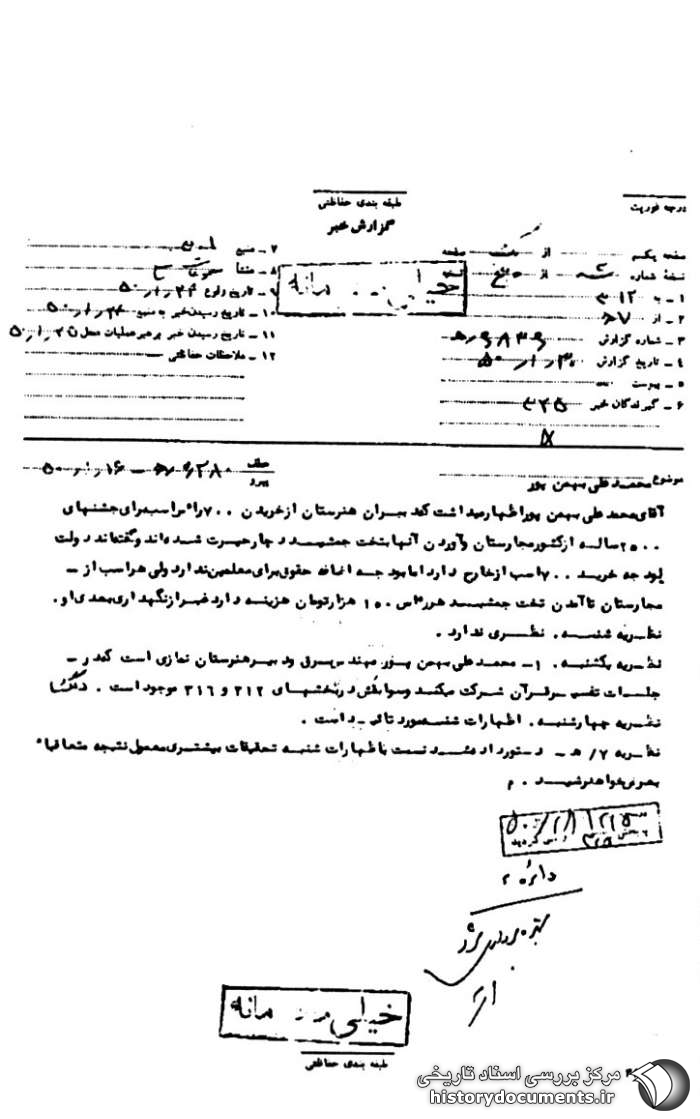 درجه فوریت
طبقه بندی حفاظتی
گزارش خبر
صفحه یکم از صفحه
نسخه شماره از پنج نسخه
۱ - به ۳۱۲
۲ - از ۷ه
۳ - شماره گزارش
۴ - تاریخ گزارش ۵۰٫۱٫۳۰
۵ - پیوست
۶ - گیرندگان خبر ۳۴۵
۷ - منبع
۸ - منشأ
۹ - تاریخ وقوع ۵۰٫۱٫۲۴
۱۰ - تاریخ رسیدن خبر به منبع ۵۰٫۱٫۲۴
۱۱ - تاریخ رسیدن خبر به رهبر عملیات محل ۵۰٫۱٫۲۵
۱۲ - ملاحظات حفاظتی
خیلی محرمانه
موضوع محمد علی بهمن پور
عطف
پیرو ۵۰٫۱٫۱۶
آقای محمد علی بهمن پور اظهار میداشت که دبیران هنرستان از خریدن ۷۰۰ راس اسب برای جشنهای
۲۵۰۰ ساله از کشور مجارستان و آوردن آنها بتخت جمشید دچار حیرت شده‌اند و گفته‌اند دولت
بودجه خرید ۷۰۰ اسب از خارج دارد اما بودجه اضافه حقوق برای معلمین ندارد ولی هر اسب از -
مجارستان تا آمدن تخت جمشید هر راس ۱۵۰ هزار تومان هزینه دارد غیر از نگهداری بعدی او.
نظریه شنبه. نظری ندارد.
نظریه یکشنبه. ۱- محمد علی بهمن پور مهندس برق و دبیر هنرستان نمازی است که در -
جلسات تفسیر قرآن شرکت میکند و سوابقش در بخشهای ۳۱۲ و ۳۱۶ موجود است. دلگشا
نظریه چهارشنبه. اظهارات شنبه مورد تائید است.
نظریه ۷/ه - دستور داده شد نسبت باظهارات شنبه تحقیقات بیشتری معمول نتیجه متعاقبا"
بعرض خواهد رسید. م
دائره ۲
خیلی محرمانه
طبقه بندی حفاظتی
مرکز بررسی اسناد تاریخی
historydocuments.ir